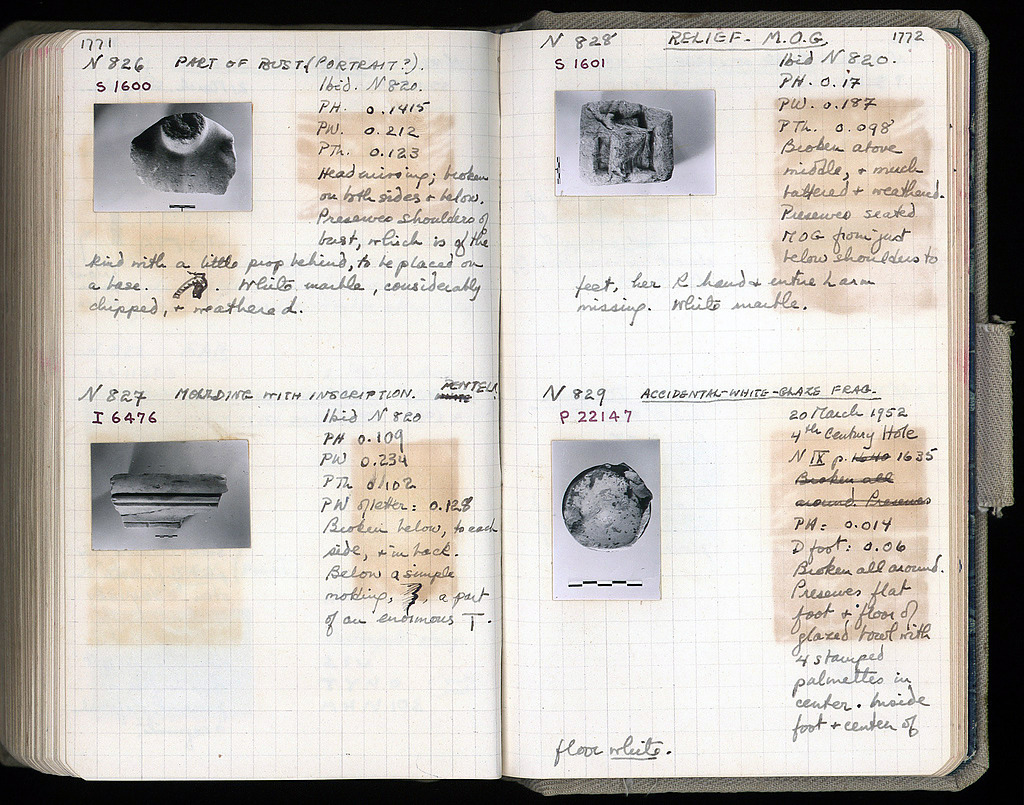 1771
N 826 PART OF BUST (PORTRAIT?).
S 1600
Ibid. N 820.
PH. 0.1415
PW. 0.212
PTh. 0.123
Head missing; broken
on both sides + below.
Preserves shoulders of
bust, which is of the
kind with a little prop behind, to be placed on
a base. . White marble, considerably
chipped, + weathered.
N 827 MOULDING WITH INSCRIPTION. PENTELI
I 6476
Ibid N 820
PH 0.109
PW 0.234
PTh 0.102
PW of letter: 0.128
Broken below, to each
side, + in back.
Below a simple
molding, , a part
of an enormous T.
1772
N 828 RELIEF - M.O.G.
S 1601
Ibid N 820.
PH. 0.17
PW. 0.187
PTh. 0.098
Broken above
middle, + much
battered + weathered.
Preserves seated
MOG from just
below shoulders to
feet, her R hand + entire L arm
missing. White marble.
N 829 ACCIDENTAL-WHITE-GLAZE FRAG.
P 22147
20 March 1952
4th Century Hole
N IX p. 1640 1635
Broken all
around Preserves
PH: 0.014
D foot: 0.06
Broken all around.
Preserves flat
foot + floor of
glazed bowl with
4 stamped
palmettes in
center. Inside
foot + center of
floor white.